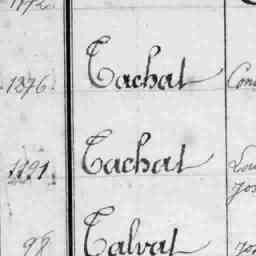 1876. Tachat Con
1891. Tachat Lou
Jos
98 Talvat Jos